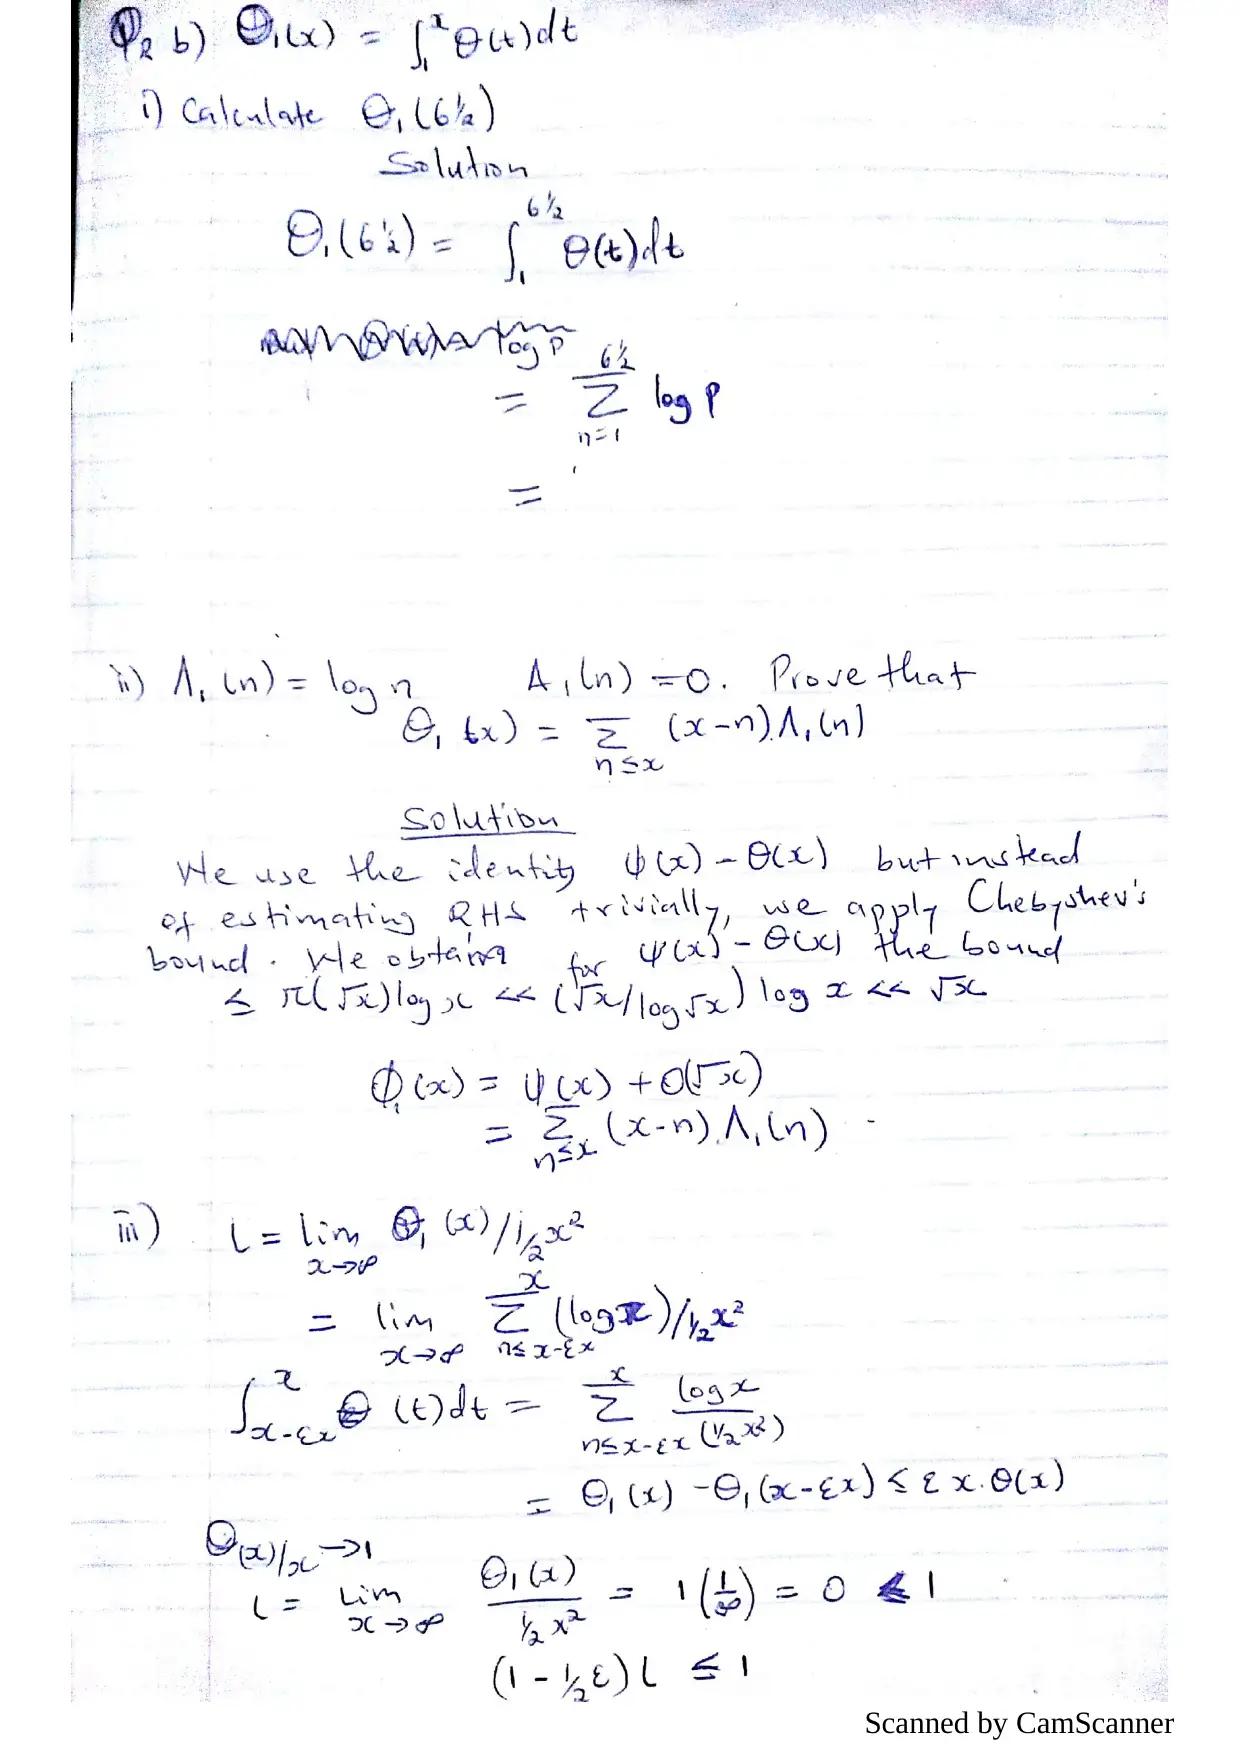 Q2 b) Θ₁(x) = ∫₁ˣ θ(t)dt
i) Calculate Θ₁(6½)
Solution
Θ₁(6½) = ∫₁^6½ θ(t)dt
log p
= Σ_{n=1}^{6½} log p
=
ii) Λ₁(n) = log n Λ₁(n) = 0. Prove that
Θ₁(x) = Σ_{n≤x} (x-n).Λ₁(n)
Solution
We use the identity ψ(x) - Θ(x) but instead
of estimating RHS trivially, we apply Chebyshev's
bound. We obtaing for ψ(x) - Θ(x) the bound
≤ π(√x)log x << (√x/log√x) log x << √x
Φ₁(x) = ψ(x) + O(√x)
= Σ_{n≤x} (x-n).Λ₁(n).
iii) L = lim_{x→∞} Θ₁(x)/½x²
= lim_{x→∞} Σ_{n≤x-εx}^{x} (log x)/½x²
∫_{x-εx}^{x} Θ(t)dt = Σ_{n≤x-εx}^{x} log x/(½x²)
= Θ₁(x) - Θ₁(x-εx) ≤ εx.Θ(x)
Θ(x)/x → 1
L = Lim_{x→∞} Θ₁(x)/½x² = 1(1/∞) = 0 ≤ 1
(1 - ½ε)L ≤ 1
Scanned by CamScanner